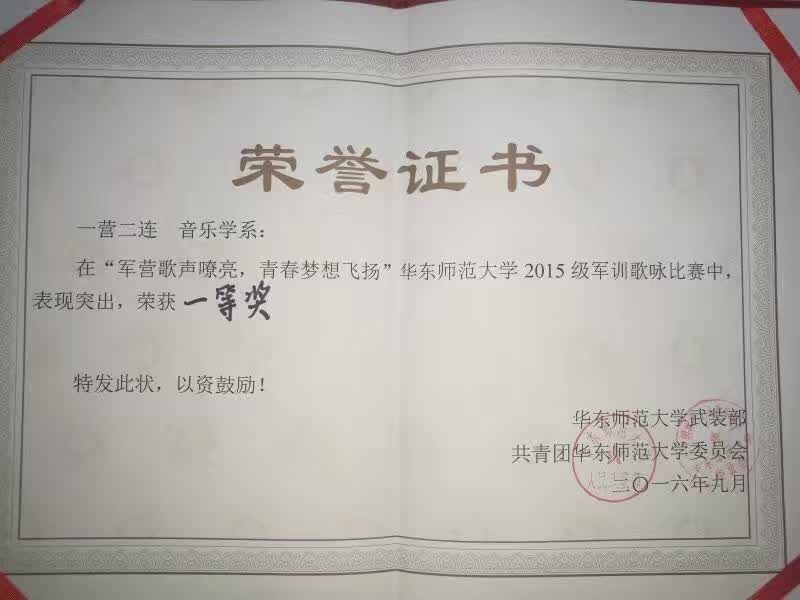 荣誉证书
一营二连 音乐学系：
在“军营歌声嘹亮，青春梦想飞扬”华东师范大学 2015 级军训歌咏比赛中，
表现突出，荣获 一等奖
特发此状，以资鼓励！
华东师范大学武装部
共青团华东师范大学委员会
二〇一六年九月